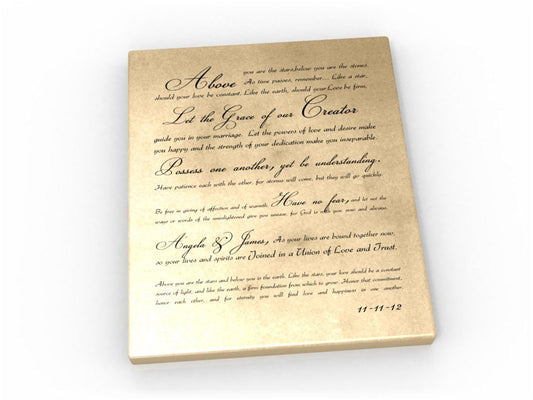 Above you are the stars, below you are the stones.
As time passes, remember... Like a star,
should your love be constant. Like the earth, should your Love be firm,
Let the Grace of our Creator
guide you in your marriage. Let the powers of love and desire make
you happy and the strength of your dedication make you inseparable.
Possess one another, yet be understanding.
Have patience each with the other, for storms will come, but they will go quickly.
Be free in giving of affection and of warmth. Have no fear, and let not the
ways or words of the unenlightened give you unease, for God is with you now and always.
Angela & James, As your lives are bound together now,
so your lives and spirits are Joined in a Union of Love and Trust.
Above you are the stars and below you is the earth. Like the stars, your love should be a constant
source of light, and like the earth, a firm foundation from which to grow. Honor that commitment,
honor each other, and for eternity you will find love and happiness in one another.
11-11-12